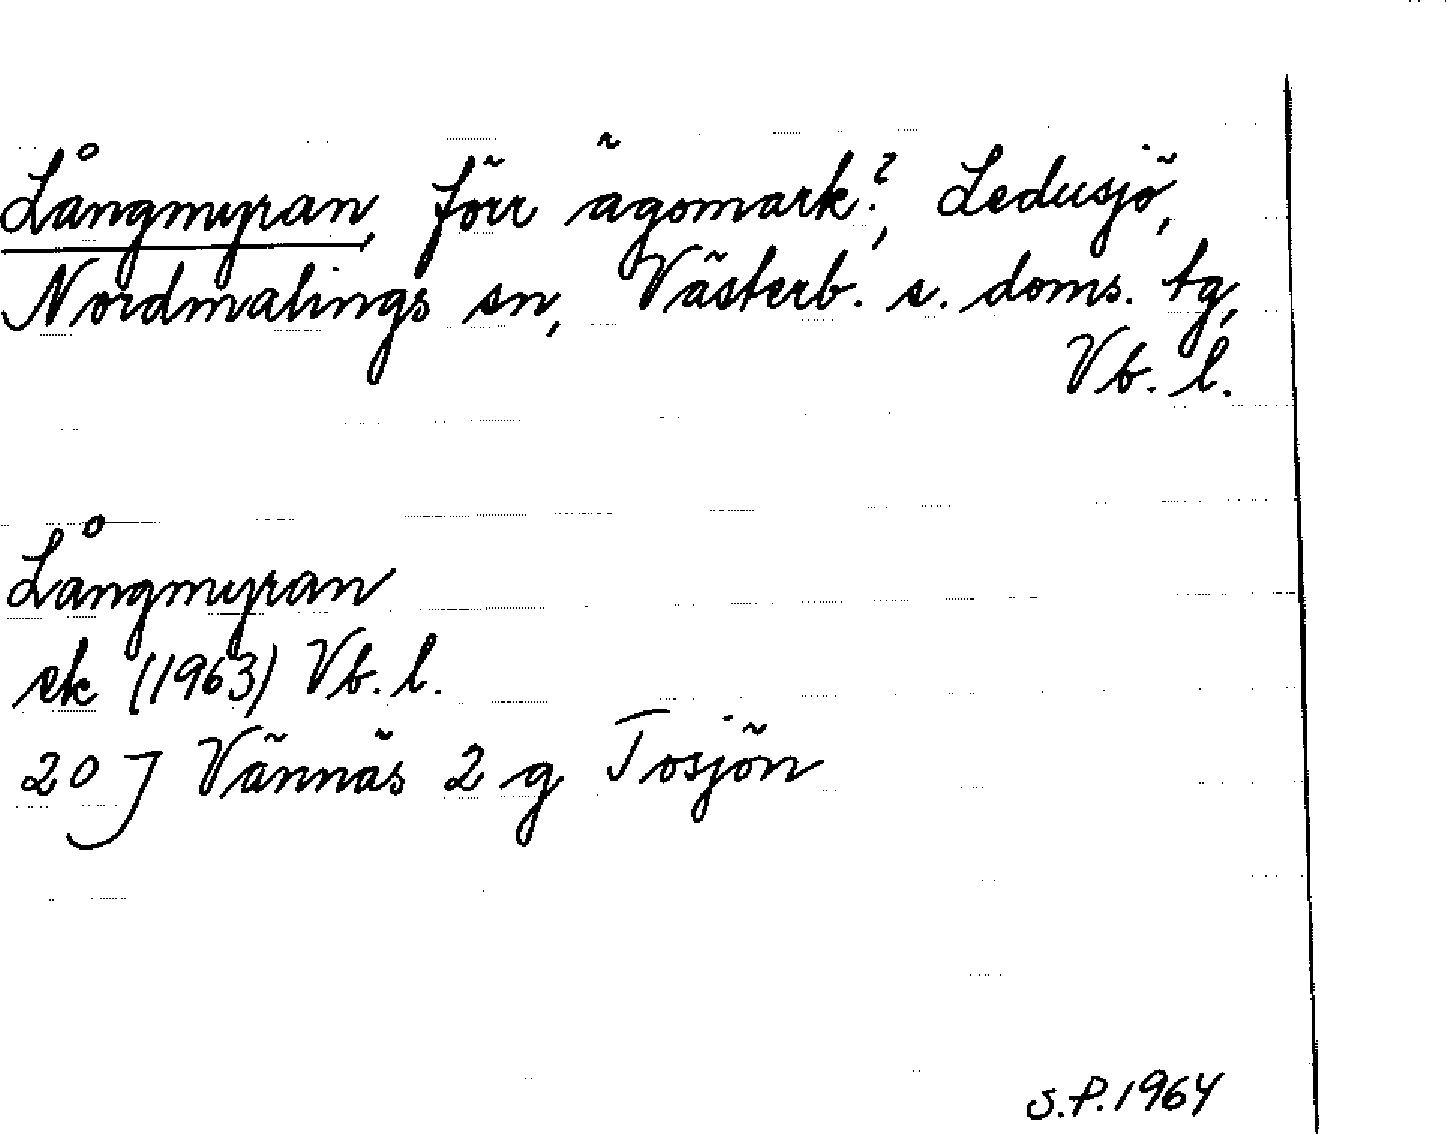 Långmyran, förr ägomark?, Ledusjö,
Nordmalings sn, Västerb. s. doms. tg,
Vb. l.
Långmyran
ek (1963) Vb. l.
20 J Vännäs 2 g Tosjön
S.P. 1964